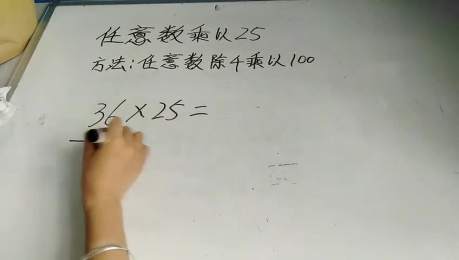 任意数乘以25
方法:任意数除4乘以100
36×25=